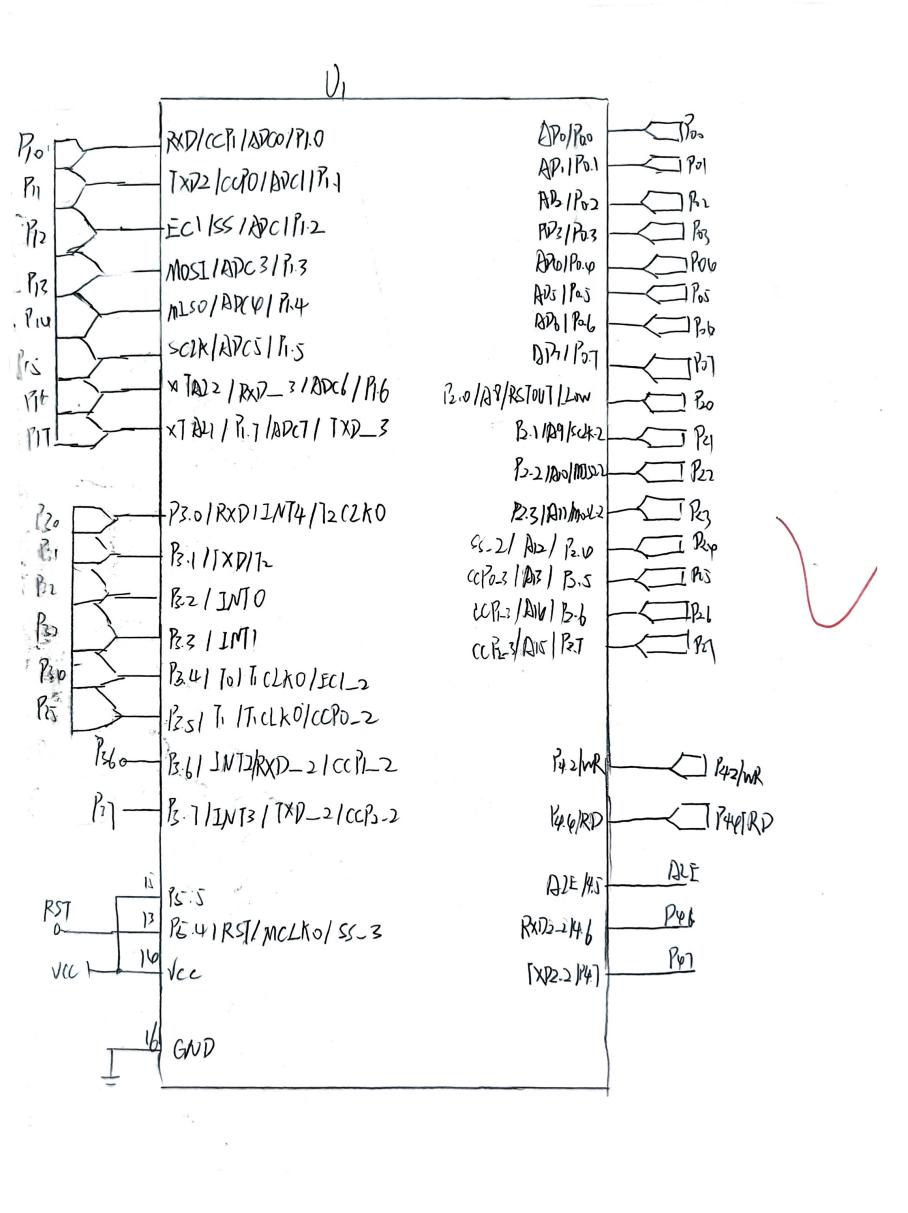 U1
P10 RXD/CCP1/ADC0/P1.0
P11 TXD2/CCP0/ADC1/P1.1
P12 ECI/SS/ADC/P1.2
P13 MOSI/ADC3/P1.3
P14 MISO/ADC4/P1.4
P15 SCLK/ADC5/P1.5
P16 XTAL2/RXD_3/ADC6/P1.6
P17 XTAL1/P1.7/ADC7/TXD_3
P30 P3.0/RXD/INT4/T2CLKO
P31 P3.1/TXD/T2
P32 P3.2/INT0
P3.3/INT1
P3.4/T0/T1CLKO/ECI_2
P35 P3.5/T1/T1CLKO/CCP0_2
P36 P3.6/INT2/RXD_2/CCP1_2
P37 P3.7/INT3/TXD_2/CCP2_2
15 P5.5
RST 13 P5.4/RST/MCLKO/SS_3
VCC 14 VCC
16 GND
AD0/P0.0 P00
AD1/P0.1 P01
AD2/P0.2 P02
AD3/P0.3 P03
AD4/P0.4 P04
AD5/P0.5 P05
AD6/P0.6 P06
AD7/P0.7 P07
P2.0/A8/RSTOUT/Low P20
P2.1/A9/SCLK-2 P21
P2.2/A10/MISO-2 P22
P2.3/A11/ P23
SS_2/A12/P2.4 P24
CCP0_3/A13/P2.5 P25
CCP1_3/A14/P2.6 P26
CCP2_3/A15/P2.7 P27
P42/WR P42/WR
P4.4/RD P44/RD
ALE/4.5 ALE
RXD2_2/4.6 P46
TXD2.2/P47 P47